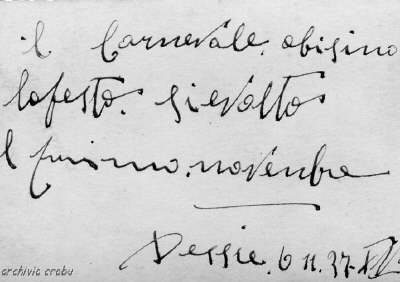 il Carnevale. abisino
lafesta. sievolto
l primo. novembre
Dessie. 6 11. 37. XV
archivio crobu